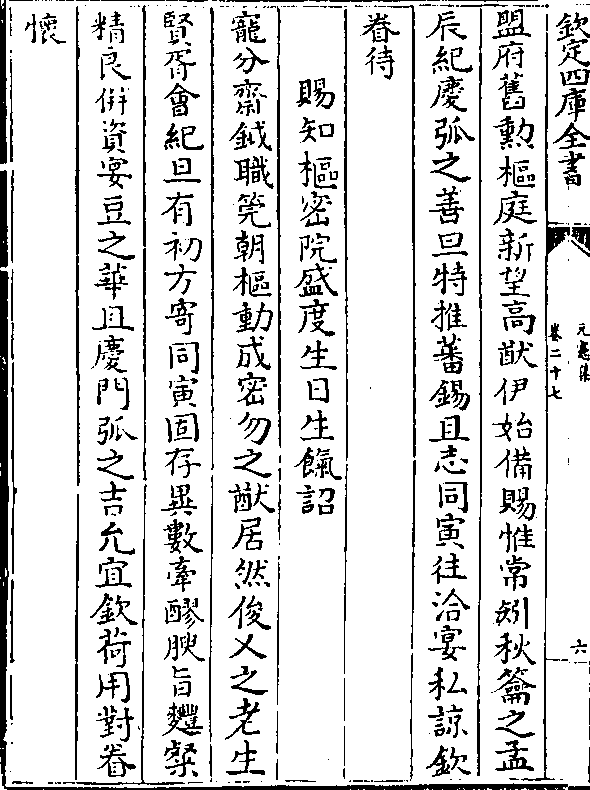 欽定四庫全書
元憲集
卷二十七
六
盟府舊勲樞庭新望高猷伊始備賜惟常矧秋籥之孟
辰紀慶弧之善旦特推蕃錫且志同寅往洽宴私諒欽
眷待
賜知樞密院盛度生日生餼詔
寵分齋鉞職筦朝樞動成密勿之猷居然俊乂之老生
賢胥會紀旦有初方寄同寅固存異數牽醪腴旨麷粲
精良併資宴豆之華且慶門弧之吉允宜欽荷用對眷
懷